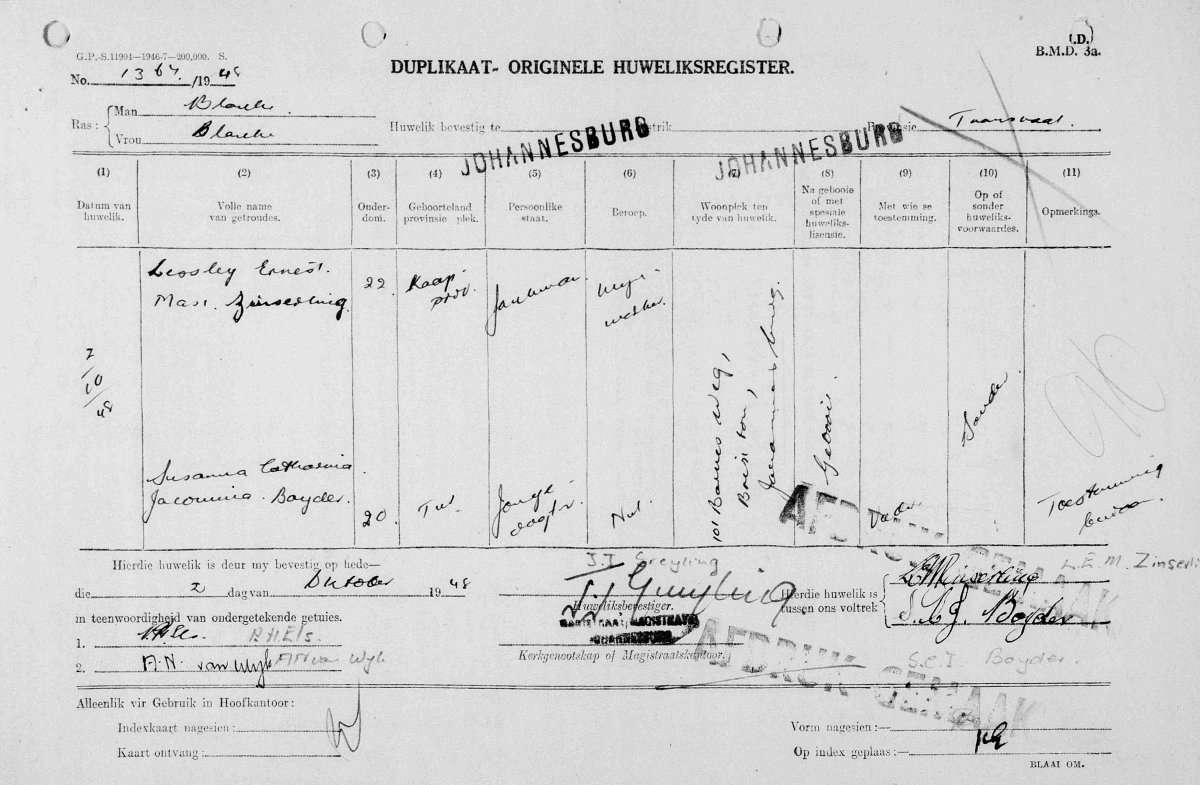 G.P.-S.11994—1946-7—200,000. S.
(D.)
B.M.D. 3a.
DUPLIKAAT- ORIGINELE HUWELIKSREGISTER.
No. 1367. /19 48
Ras: Man Blanke.
Vrou Blanke
Huwelik bevestig te JOHANNESBURG distrik JOHANNESBURG Provinsie Transvaal.
(1) (2) (3) (4) (5) (6) (7) (8) (9) (10) (11)
Datum van huwelik.
Volle name van getroudes.
Ouder-dom.
Geboorteland provinsie plek.
Persoonlike staat.
Beroep.
Woonplek ten tyde van huwelik.
Na gebooie of met spesiale huweliks-lisensie.
Met wie se toestemming.
Op of sonder huweliks-voorwaardes.
Opmerkings.
2/10/48
Lessley Ernest.
Mast. Zinserling.
22.
Kaap prov.
Jonkman.
Myn werker.
101 Barnes weg,
Johannesburg.
Gebooie.
Sonder
Susanna Catharina
Jacomina Boyder.
20.
Tvl.
Jong dogter
Nul
Vader
Toestemming
AFDRUK GEMAAK
Hierdie huwelik is deur my bevestig op hede—
die 2 dag van Oktober 19 48
in teenwoordigheid van ondergetekende getuies.
1. R.H.Els.
2. A.N. van Wyk AN van Wyk
J.J Greyling
J.J Greyling
Huweliksbevestiger.
JOHANNESBURG
Kerkgenootskap of Magistraatskantoor.
Hierdie huwelik is tussen ons voltrek
L E M Zinserling L.E.M. Zinserli
S.C.J. Boyder
S.C.J Boyder.
AFDRUK GEMAAK
Alleenlik vir Gebruik in Hoofkantoor:
Indexkaart nagesien:
Kaart ontvang:
Vorm nagesien:—
Op index geplaas:—
BLAAI OM.